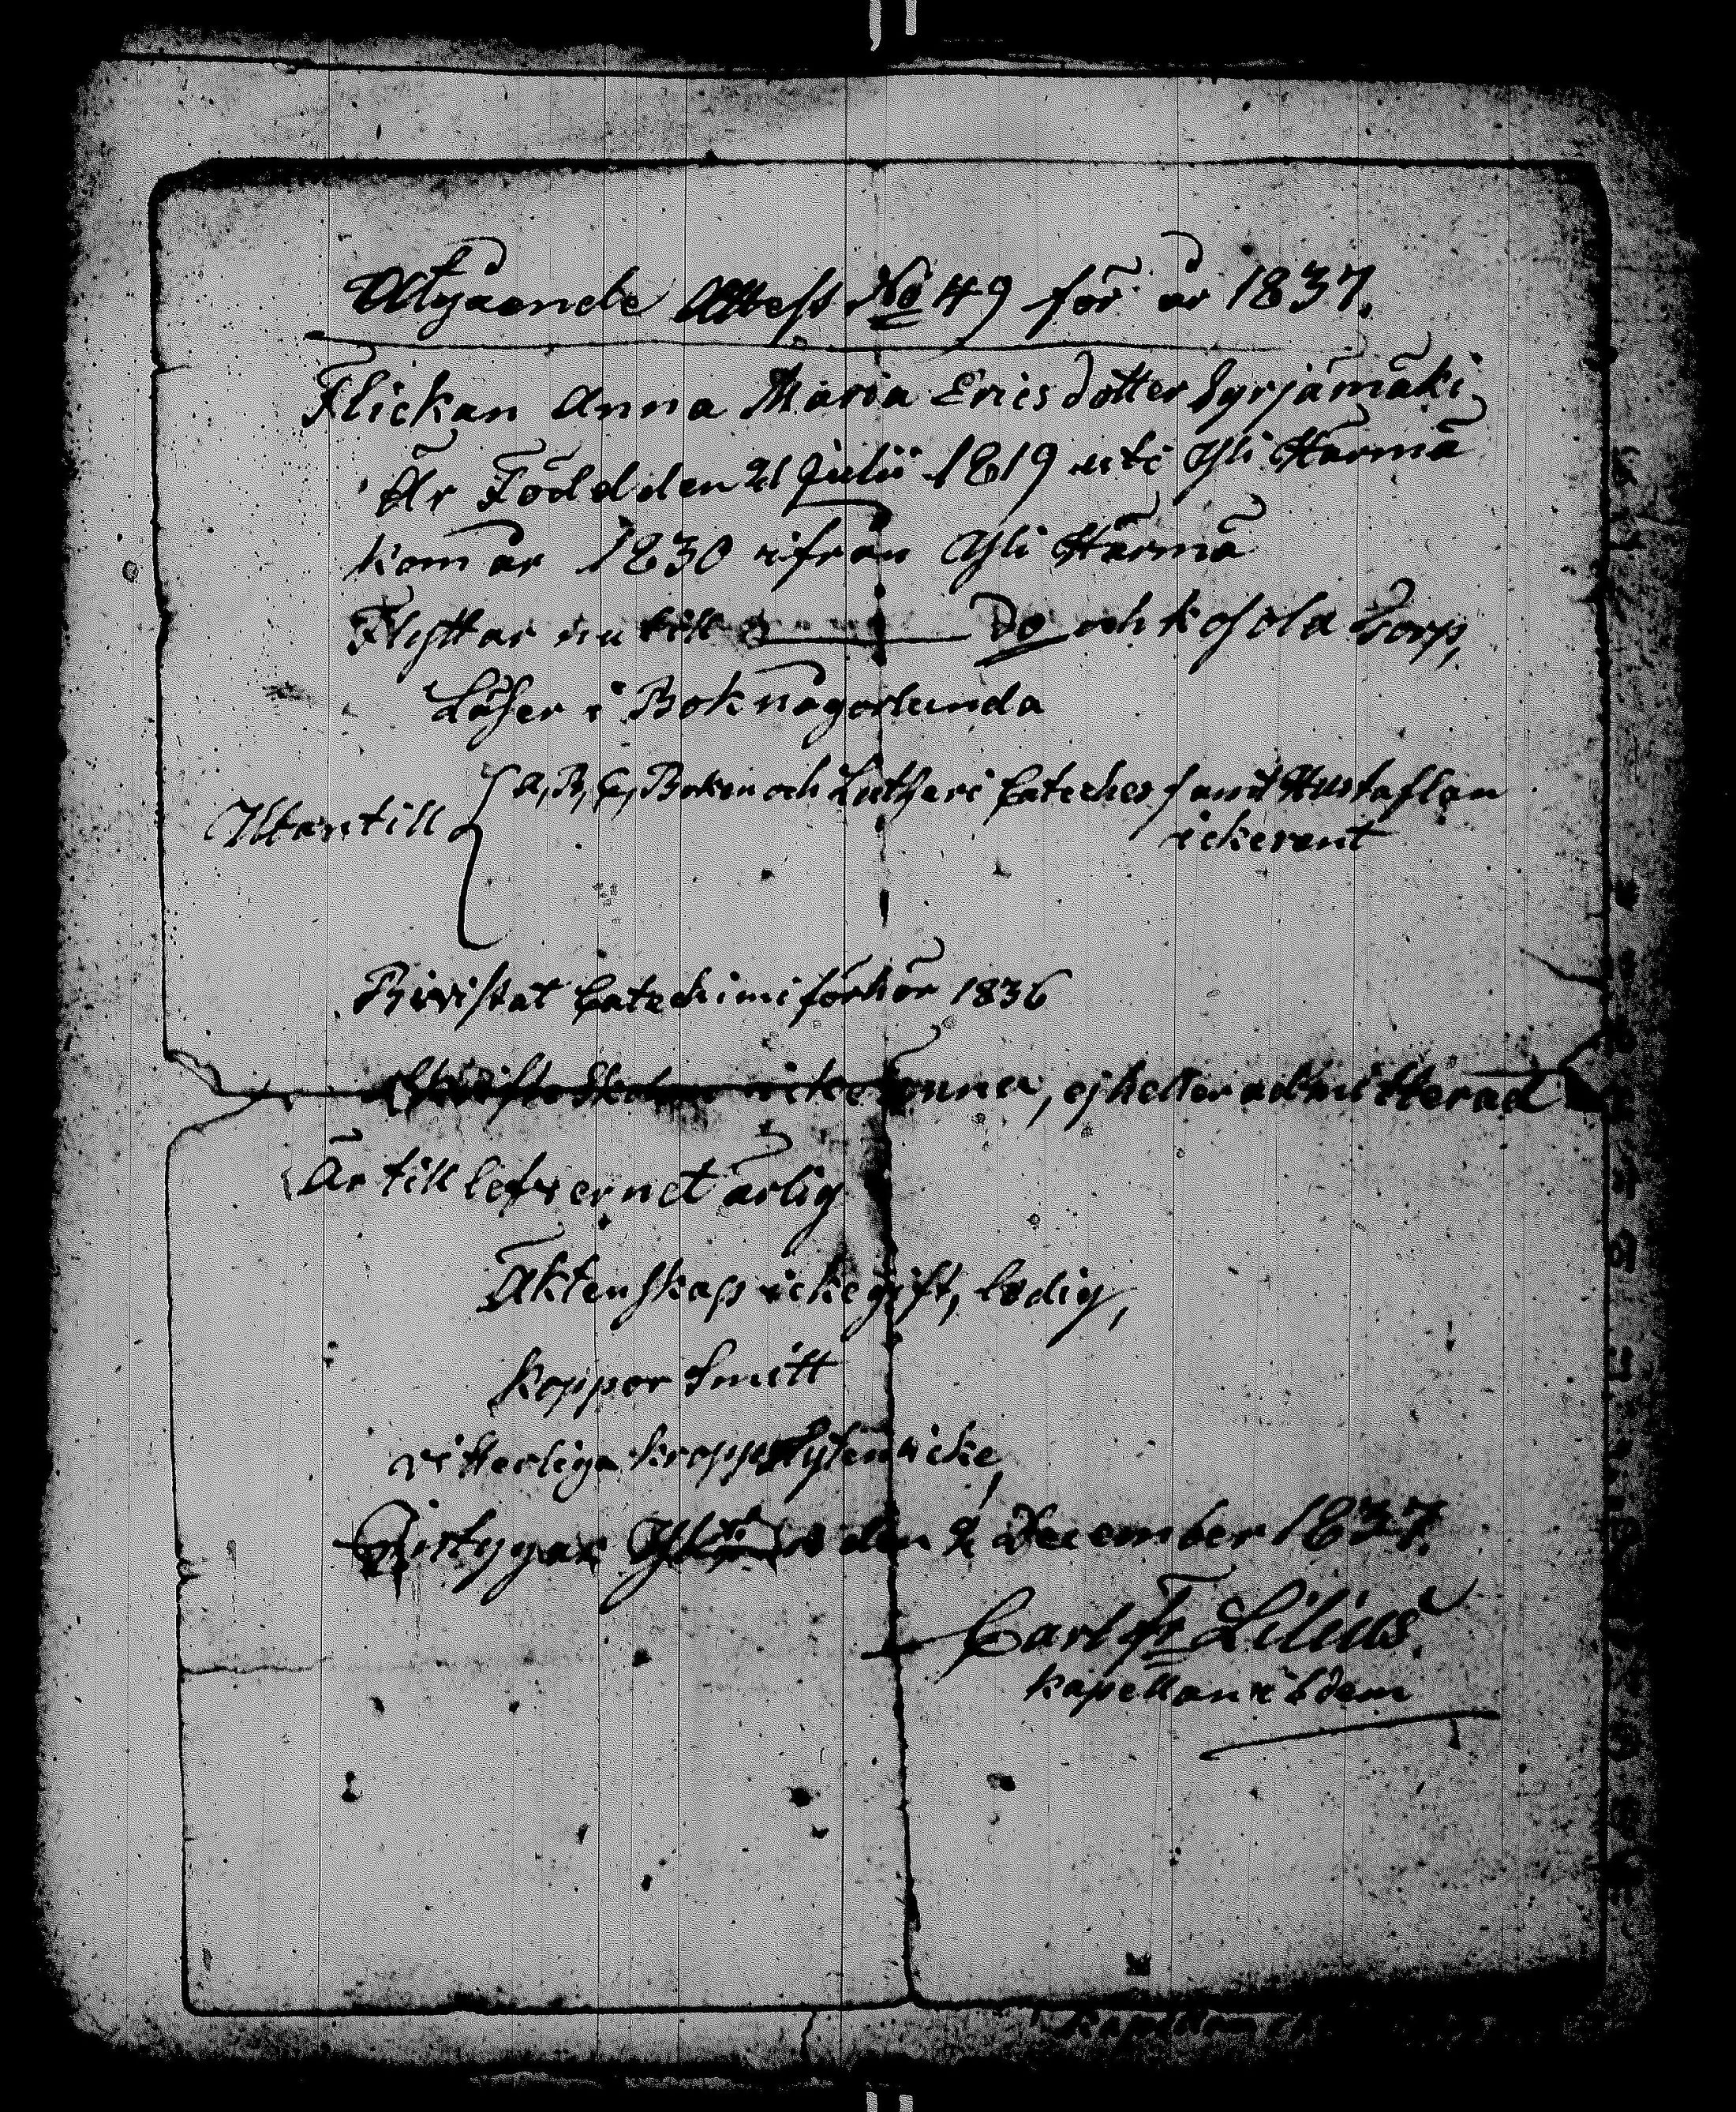 Utgaende Attest No 49 för år 1837.
Flickan Anna Maria Ericsdotter Syrjämäki
Är Född den 21 Julii 1819 uti Yli Härmä
kom år 1830 ifrån Yli Härmä
Flyttar nu till Do och Kosola Torp,
Läser i Bok någorlunda
Utantill { A, B, C, Boken och Lutheri Cateches samt Hustaflan
icke rent
Bivistat Catechimi förhör 1836
icke känner, ej heller admitterad
Är till lefvernet ärlig
Äktenskap icke gift, ledig,
Koppor Smitt
vitterliga kropps lyten icke
den 2 December 1837.
Carl Fr Lilius
Kapellan ibdem